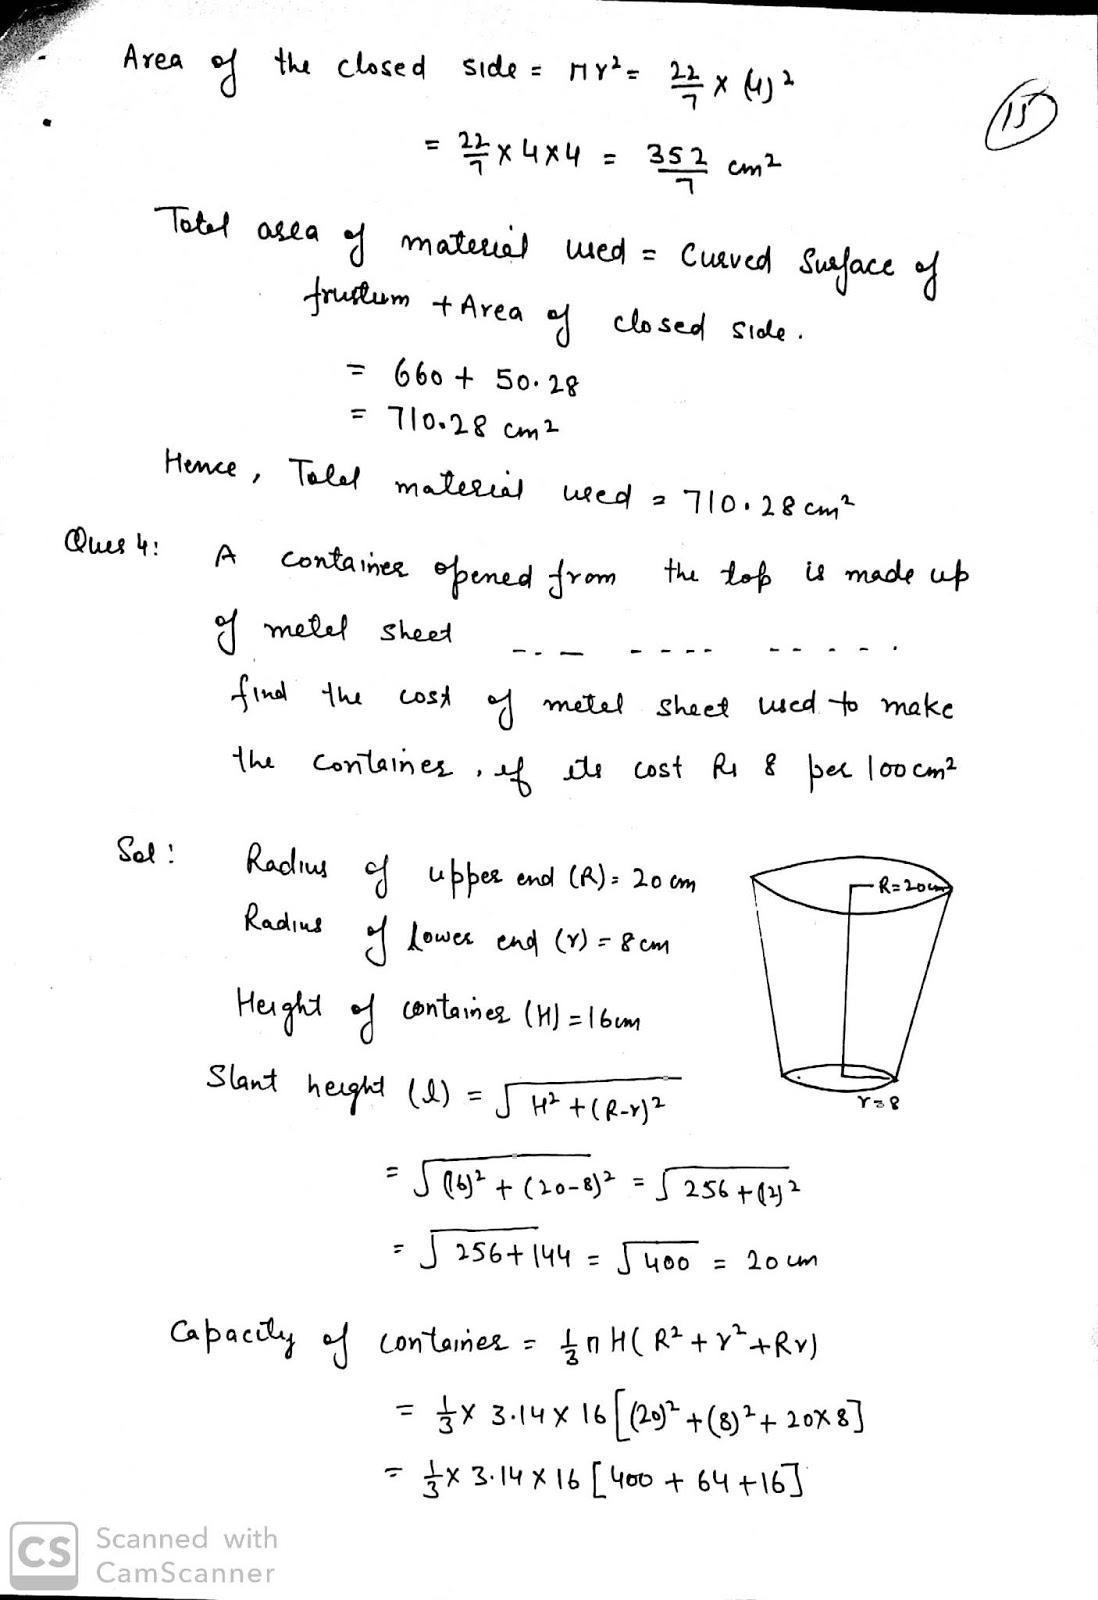 Area of the closed side = πr² = 22/7 × (4)²
15
= 22/7 × 4×4 = 352/7 cm²
Total area of material used = Curved Surface of
frustum + Area of closed side.
= 660 + 50.28
= 710.28 cm²
Hence, Total material used = 710.28 cm²
Ques 4: A container opened from the top is made up
of metal sheet --- ---- ------
find the cost of metal sheet used to make
the container, if its cost Rs 8 per 100 cm²
Sol: Radius of upper end (R) = 20 cm
R=20cm
Radius of lower end (r) = 8 cm
Height of container (H) = 16 cm
Slant height (l) = √H² + (R-r)²
r=8
= √(16)² + (20-8)² = √256 + (12)²
= √256 + 144 = √400 = 20 cm
Capacity of container = 1/3 π H( R² + r² + Rr)
= 1/3 × 3.14 × 16 [(20)² + (8)² + 20×8]
= 1/3 × 3.14 × 16 [400 + 64 + 16]
CS Scanned with
CamScanner